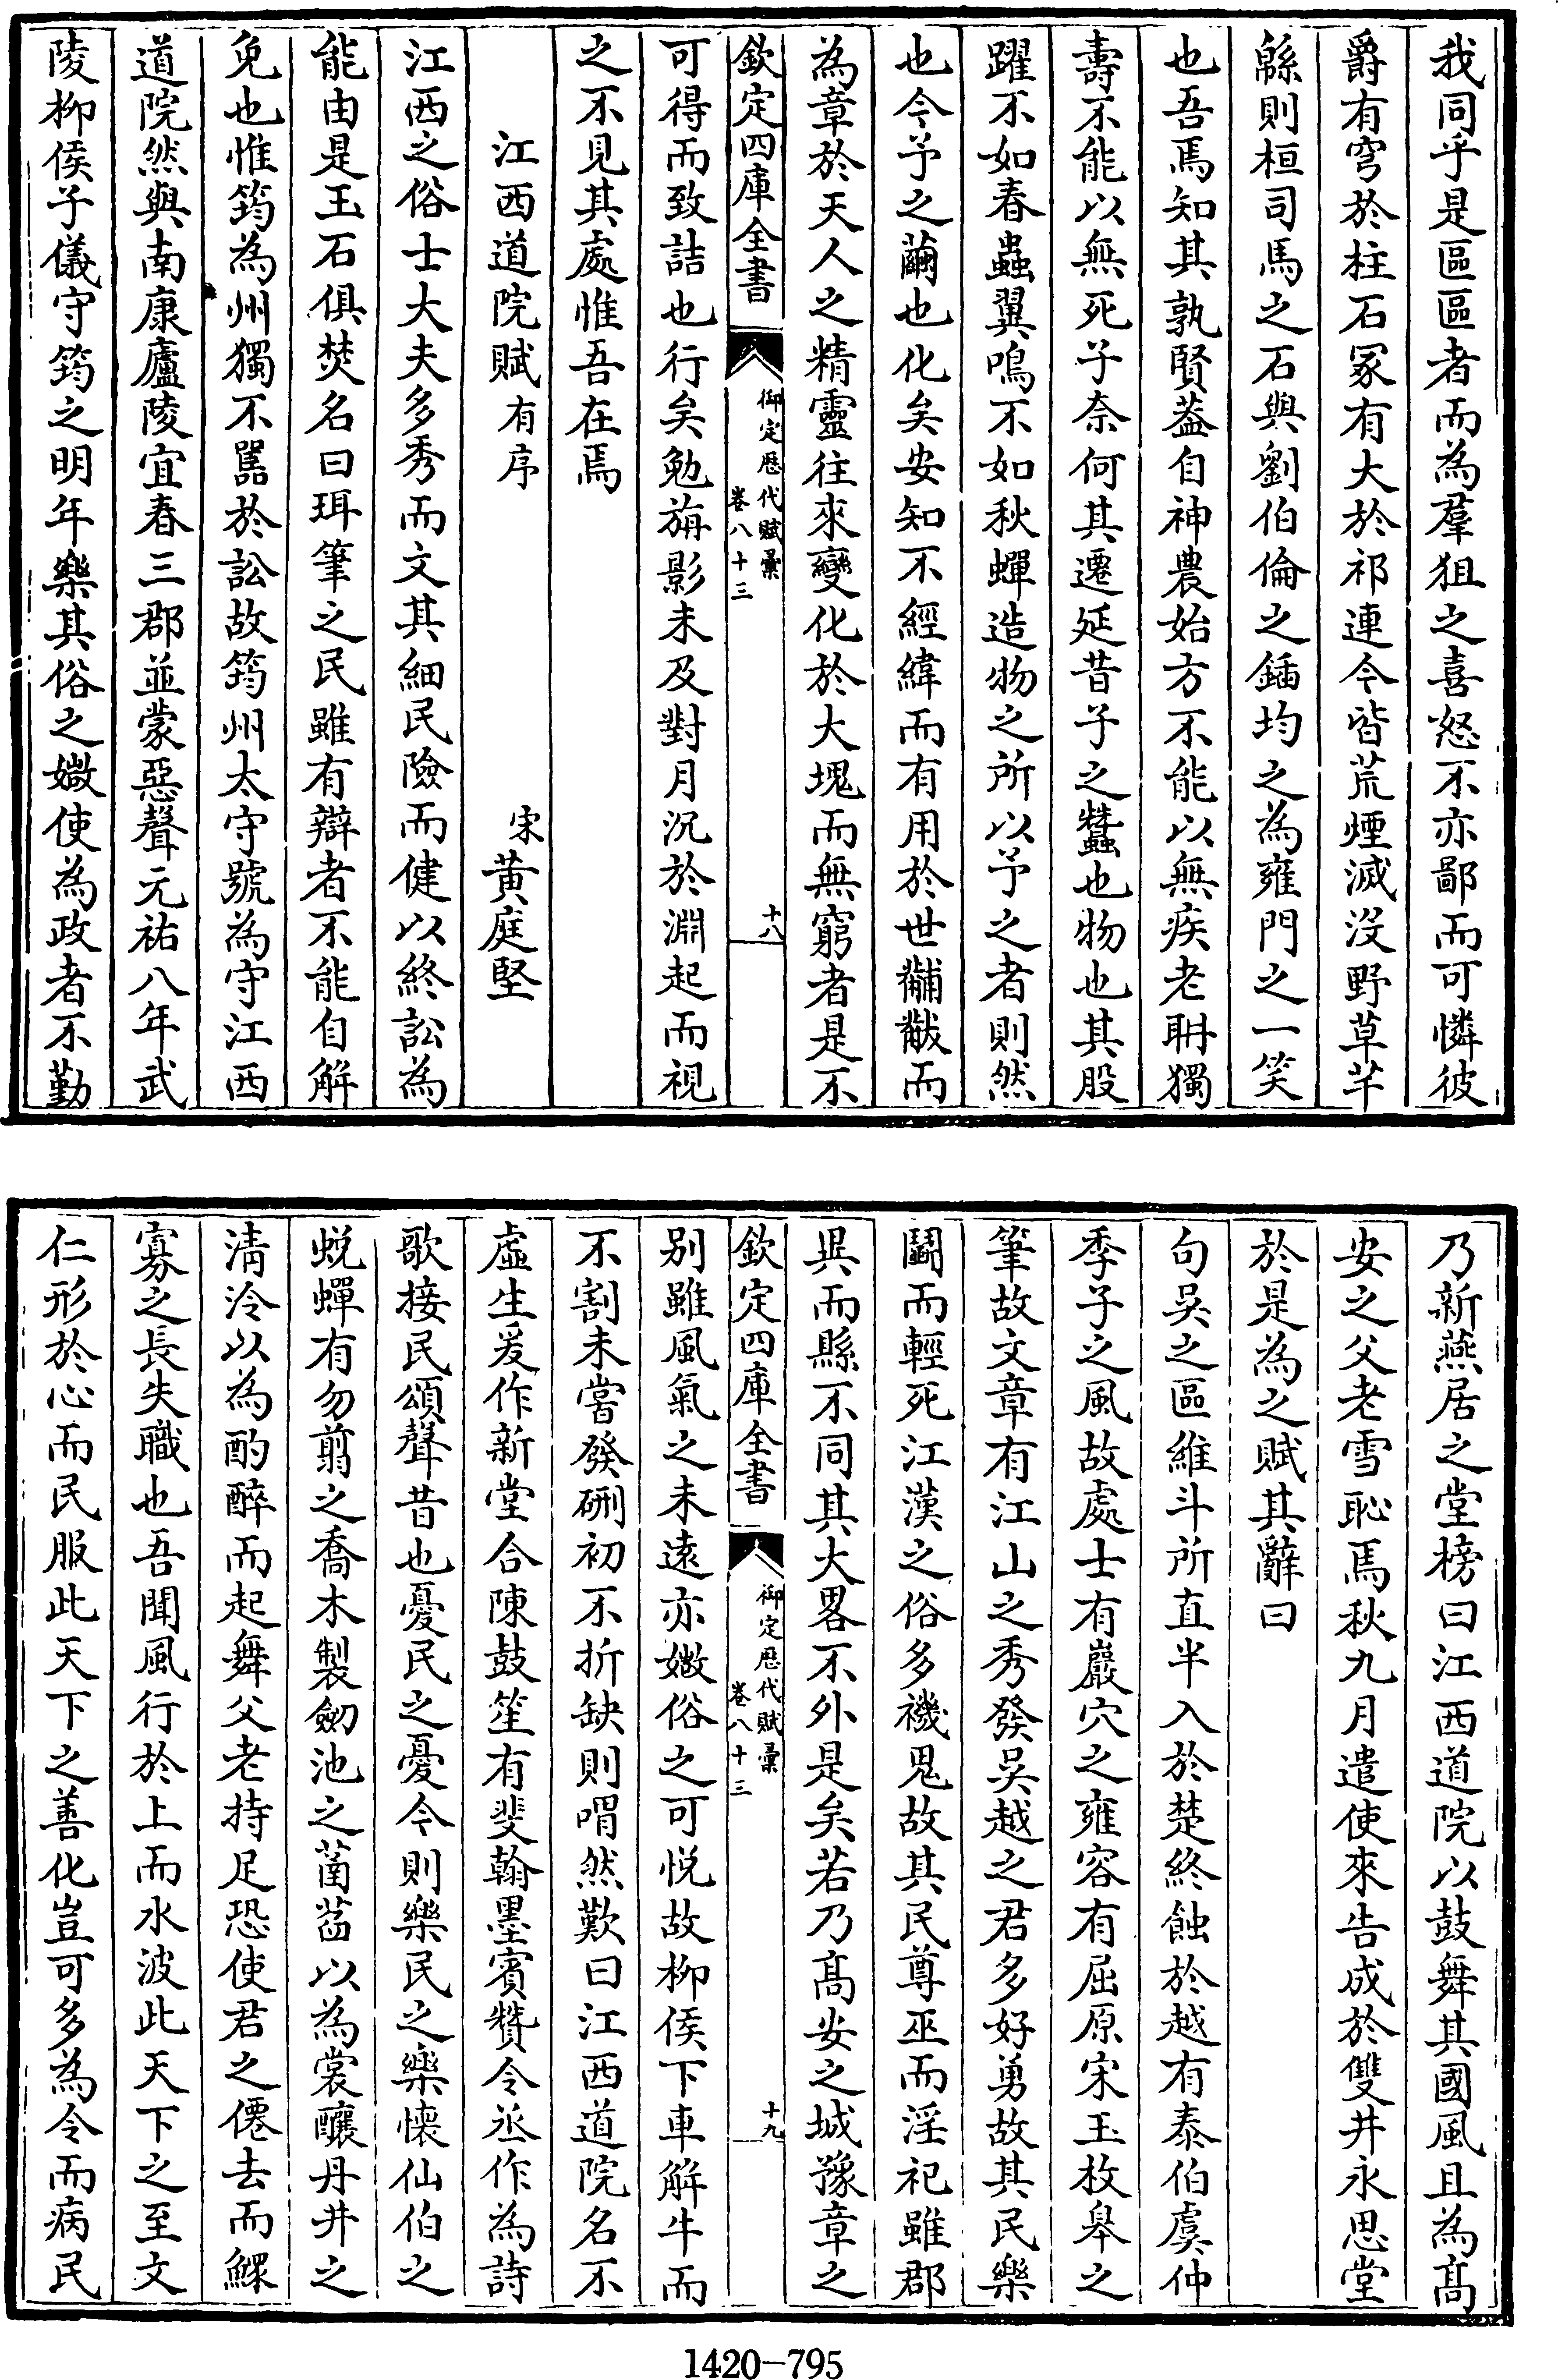 我同乎是區區者而為羣狙之喜怒不亦鄙而可憐彼
爵有穹於柱石冢有大於祁連今皆荒煙滅没野草芊
緜則桓司馬之石與劉伯倫之鍤均之為雍門之一笑
也吾焉知其孰賢葢自神農始方不能以無疾老聃獨
壽不能以無死子奈何其遷延昔子之蠶也物也其股
躍不如春蟲翼鳴不如秋蟬造物之所以予之者則然
也今予之繭也化矣安知不經緯而有用於世黼黻而
為章於天人之精靈往來變化於大塊而無窮者是不
欽定四庫全書
御定歴代賦彙
卷八十三
十八
可得而致詰也行矣勉旃影未及對月沉於淵起而視
之不見其處惟吾在焉
江西道院賦有序
宋黄庭堅
江西之俗士大夫多秀而文其細民險而健以終訟為
能由是玉石俱焚名曰珥筆之民雖有辯者不能自解
免也惟筠為州獨不嚚於訟故筠州太守號為守江西
道院然與南康廬陵宜春三郡並蒙惡聲元祐八年武
陵柳侯子儀守筠之明年樂其俗之媺使為政者不勤
乃新燕居之堂榜曰江西道院以鼓舞其國風且為髙
安之父老雪恥焉秋九月遣使來告成於雙井永思堂
於是為之賦其辭曰
句吳之區維斗所直半入於楚終蝕於越有泰伯虞仲
季子之風故處士有巖穴之雍容有屈原宋玉枚臯之
筆故文章有江山之秀發吳越之君多好勇故其民樂
鬭而輕死江漢之俗多禨鬼故其民尊巫而淫祀雖郡
異而縣不同其大畧不外是矣若乃髙安之城豫章之
欽定四庫全書
御定歴代賦彙
卷八十三
十九
别雖風氣之未遠亦媺俗之可悦故柳侯下車解牛而
不割未嘗發硎初不折缺則喟然歎曰江西道院名不
虛生爰作新堂合陳鼓笙有斐翰墨賓贊令丞作為詩
歌接民頌聲昔也憂民之憂今則樂民之樂懐仙伯之
蜕蟬有勿翦之喬木製劒池之菡萏以為裳釀丹井之
清泠以為酌醉而起舞父老持足恐使君之僊去而鰥
寡之長失職也吾聞風行於上而水波此天下之至文
仁形於心而民服此天下之善化豈可多為令而病民
1420-795